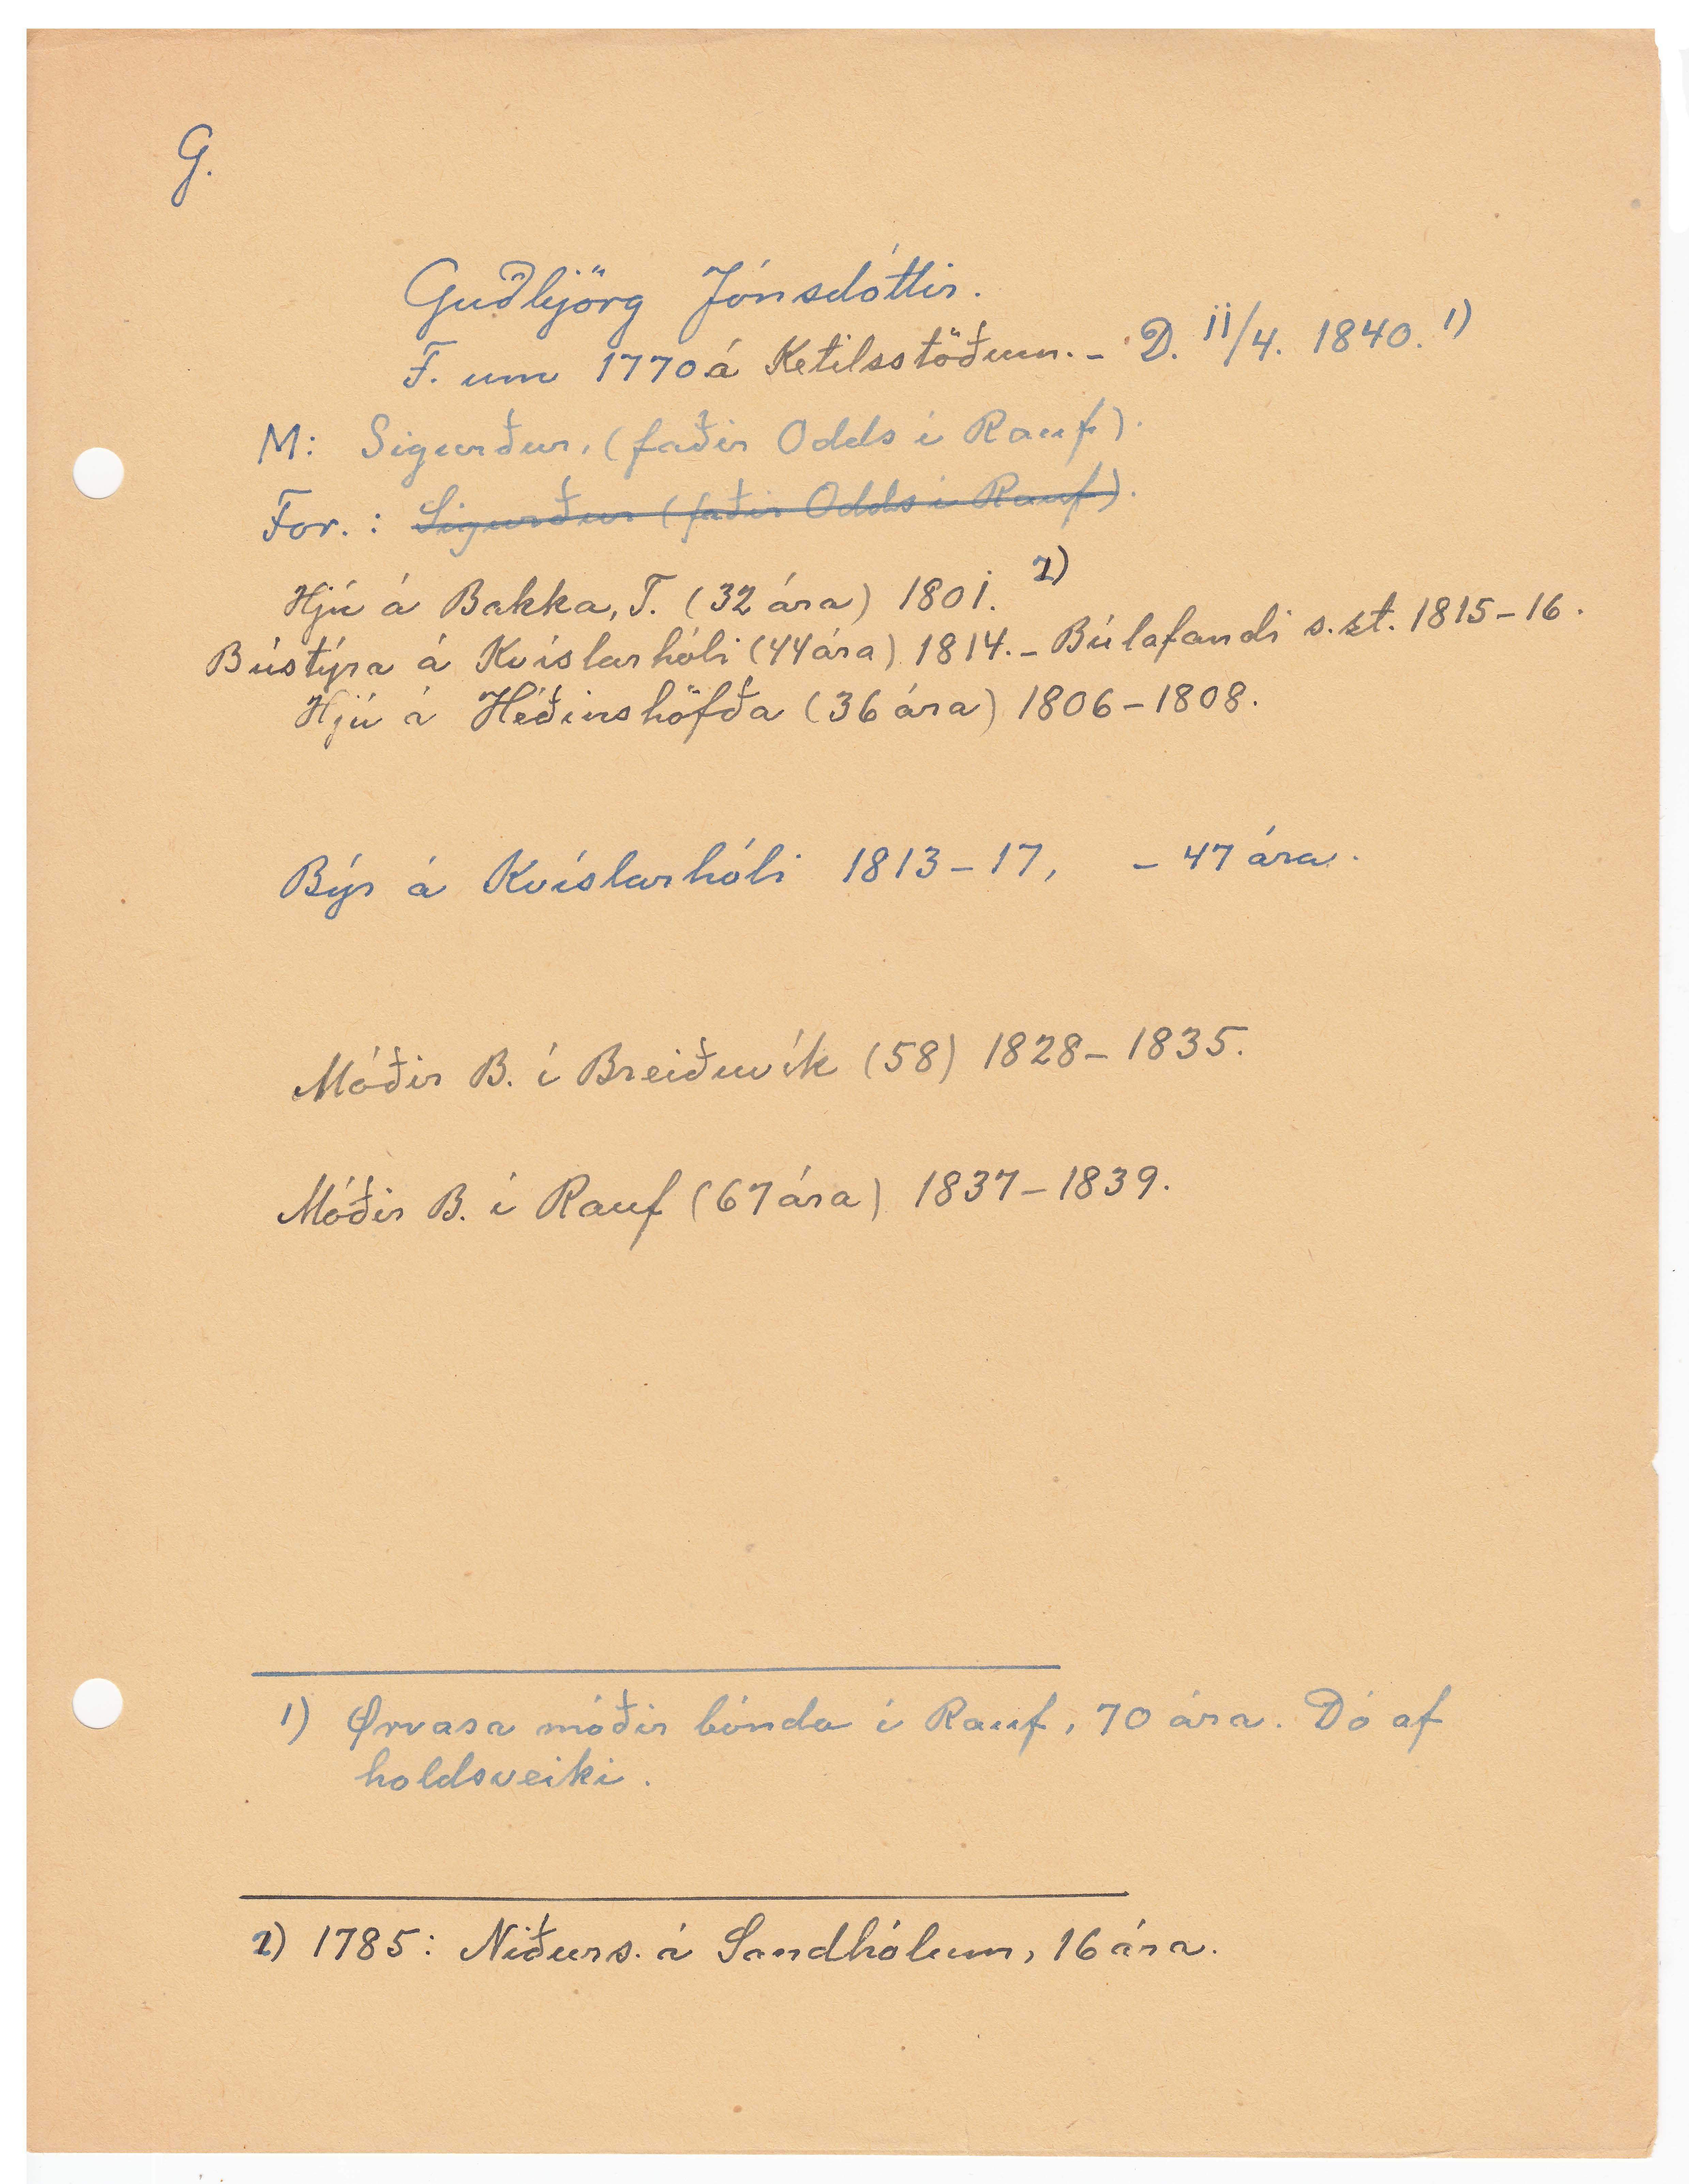 G.
Guðbjörg Jónsdóttir.
F. um 1770 á Ketilsstöðum. - D. 11/4. 1840. 1)
M: Sigurður, (faðir Odds í Rauf).
For. : Sigurður (faðir Odds í Rauf).
Hjú á Bakka, T. (32 ára) 1801. 2)
Bústýra á Kvíslarhóli (44 ára) 1814. - Búlafandi s.st. 1815-16.
Hjú á Héðinshöfða (36 ára) 1806-1808.
Býr á Kvíslarhóli 1813-17, - 47 ára.
Móðir B. í Breiðuvík (58) 1828-1835.
Móðir B. í Rauf (67 ára) 1837-1839.
1) Ørvasa móðir bónda í Rauf, 70 ára. Dó af
holdsveiki.
2) 1785: Niðurs. á Sandhólum, 16 ára.